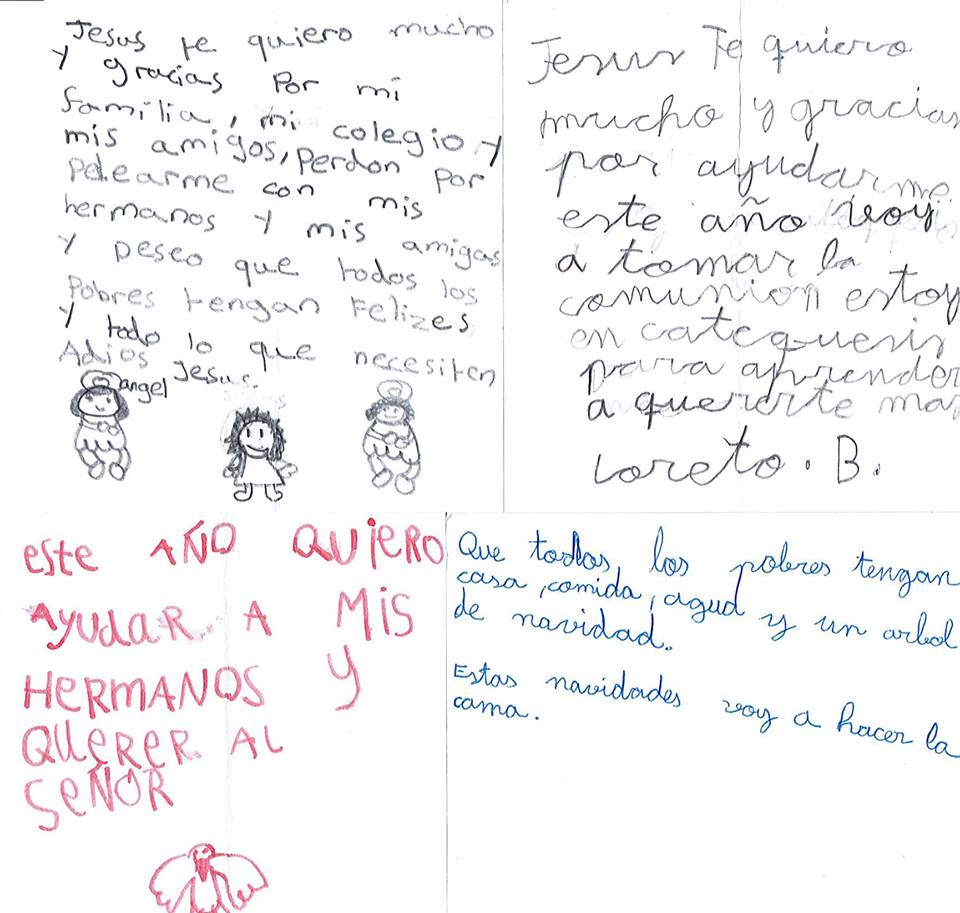 Jesus te quiero mucho
y gracias Por mi
familia, mi colegio y
mis amigos, perdon por
pelearme con mis
hermanos y mis amigas
y deseo que todos los
Pobres tengan Felizes
y todo lo que necesiten
Adios Jesus.
angel
Jesus Te quiero
mucho y gracias
por ayudarme
este año voy
a tomar la
comunion estoy
en catequesis
para aprender
a quererte mas
Loreto. B.
este AÑO QUiERO
AyudAR A MiS
HERMANOS y
QUERER AL
SEÑOR
Que todos los pobres tengan
casa, comida, agua y un arbol
de navidad.
Estas navidades voy a hacer la
cama.